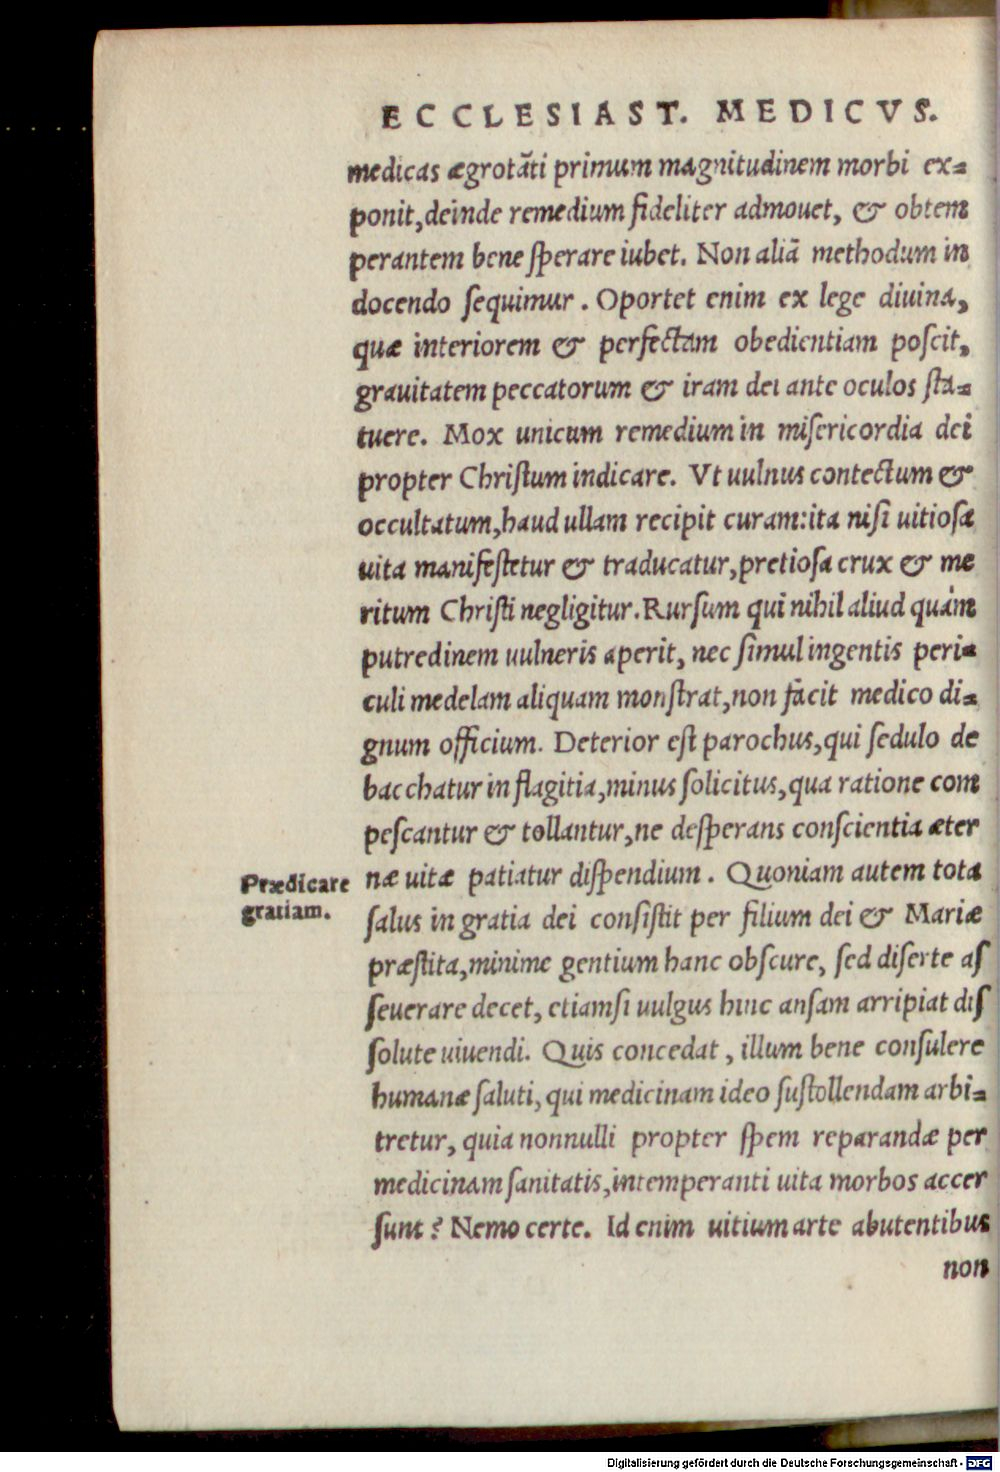 ECCLESIAST. MEDICVS.
medicas ægrotãti primum magnitudinem morbi ex=
ponit, deinde remedium fideliter admouet, & obtem
perantem bene ſperare iubet. Non aliã methodum in
docendo ſequimur. Oportet enim ex lege diuina,
quæ interiorem & perfectam obedientiam poſcit,
grauitatem peccatorum & iram dei ante oculos ſta=
tuere. Mox unicum remedium in miſericordia dei
propter Chriſtum indicare. Vt uulnus contectum &
occultatum, haud ullam recipit curam: ita niſi uitioſa
uita manifeſtetur & traducatur, pretioſa crux & me
ritum Chriſti negligitur. Rurſum qui nihil aliud quàm
putredinem uulneris aperit, nec ſimul ingentis peri=
culi medelam aliquam monſtrat, non facit medico di=
gnum officium. Deterior eſt parochus, qui ſedulo de
bacchatur in flagitia, minus ſolicitus, qua ratione com
peſcantur & tollantur, ne deſperans conſcientia æter
Prædicare
gratiam.
næ uitæ patiatur diſpendium. Quoniam autem tota
ſalus in gratia dei conſiſtit per filium dei & Mariæ
præſtita, minime gentium hanc obſcure, ſed diſerte aſ
ſeuerare decet, etiamſi uulgus hinc anſam arripiat diſ
ſolute uiuendi. Quis concedat, illum bene conſulere
humanæ ſaluti, qui medicinam ideo ſuſtollendam arbi=
tretur, quia nonnulli propter ſpem reparandæ per
medicinam ſanitatis, intemperanti uita morbos accer
ſunt? Nemo certe. Id enim uitium arte abutentibus
non
Digitalisierung gefördert durch die Deutsche Forschungsgemeinschaft - DFG